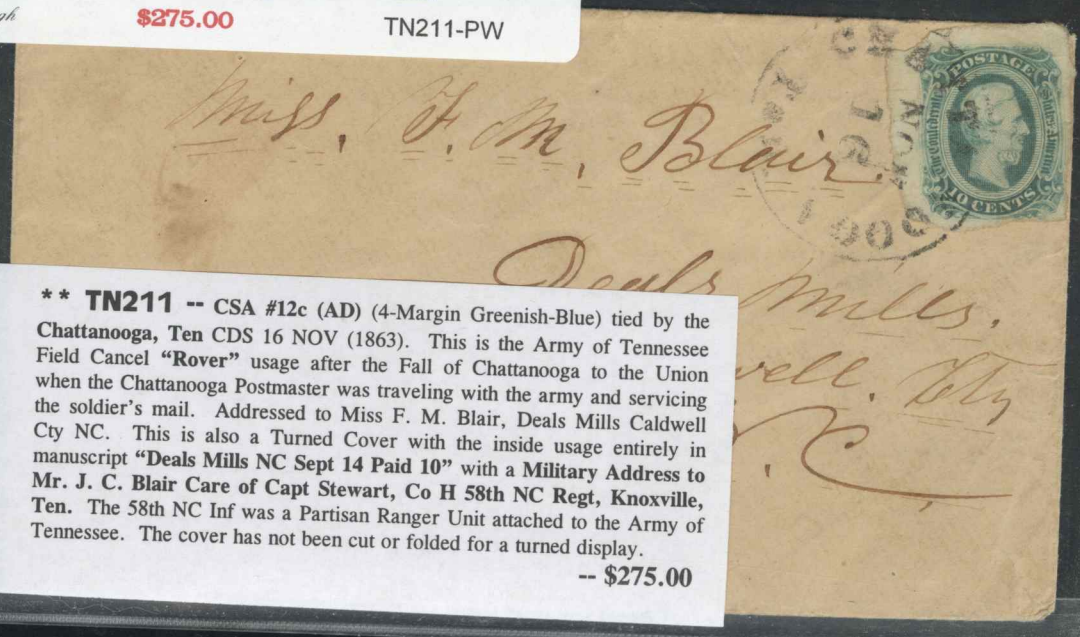 $275.00
TN211-PW
Miss. F. M. Blair.
Deals Mills.
well. Cty
C
16
NOV
POSTAGE
The Confederate States of America
10 CENTS
** TN211 -- CSA #12c (AD) (4-Margin Greenish-Blue) tied by the
Chattanooga, Ten CDS 16 NOV (1863). This is the Army of Tennessee
Field Cancel “Rover” usage after the Fall of Chattanooga to the Union
when the Chattanooga Postmaster was traveling with the army and servicing
the soldier’s mail. Addressed to Miss F. M. Blair, Deals Mills Caldwell
Cty NC. This is also a Turned Cover with the inside usage entirely in
manuscript “Deals Mills NC Sept 14 Paid 10” with a Military Address to
Mr. J. C. Blair Care of Capt Stewart, Co H 58th NC Regt, Knoxville,
Ten. The 58th NC Inf was a Partisan Ranger Unit attached to the Army of
Tennessee. The cover has not been cut or folded for a turned display.
-- $275.00